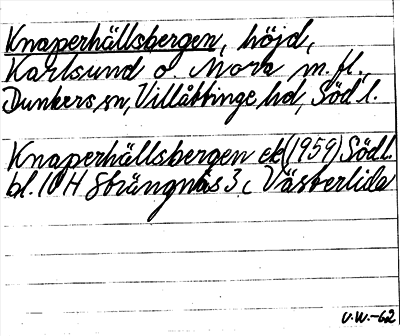 Knaperhällsbergen, höjd,
Karlsund o. Mora m.fl.,
Dunkers sn, Villåttinge hd, Södl.
Knaperhällsbergen ek (1959) Södl.
bl. 10 H Strängnäs 3 c Västerlida
V.W.-62